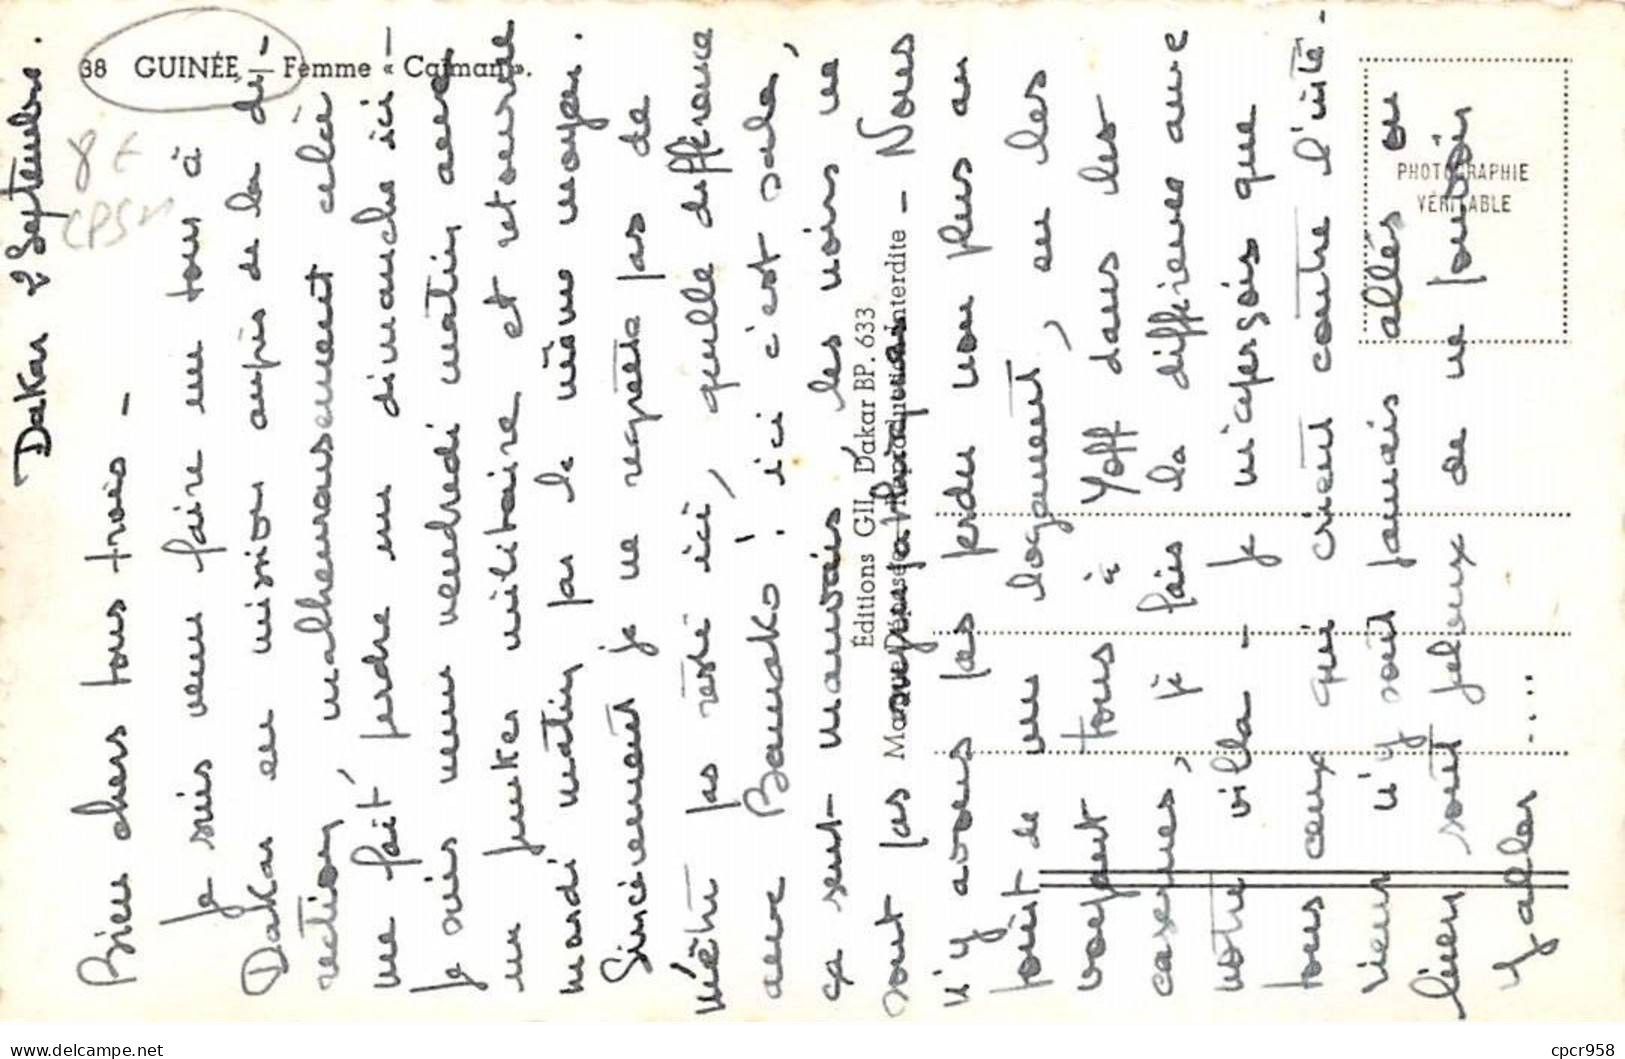 38 GUINÉE — Femme « Caïman ».
8 €
CPSM
Dakar 2 Septembre.
Bien chers tous trois -
Je suis venu faire un tour à
Dakar en mission auprès de la di-
rection, malheureusement cela
me fait perdre un dimanche ici -
Je suis venu vendredi matin avec
un junker militaire et retourne
mardi matin par le même moyen.
Sincèrement je ne regrette pas de
pas resté ici, quelle différence
avec Bamako ! ici c'est sale,
ça sent mauvais, les noirs ne
sont pas sympathiques - Nous
n'y avons pas perdu non plus au
point de vue logement, en les
voyant tous à Yoff dans les
casernes, je fais la différence avec
notre villa - Je m'aperçois que
tous ceux qui crient contre l'inté-
rieur n'y sont jamais allés ou
bien sont jaloux de ne pouvoir
y aller ....
Éditions GIL Dakar BP. 633
Marque Déposée - Reproduction interdite
PHOTOGRAPHIE
VÉRITABLE
delcampe.net
cpcr958